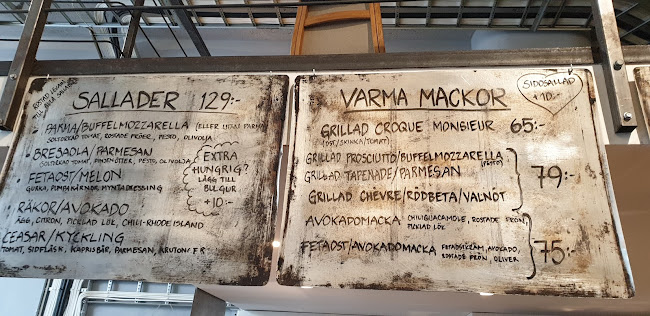 SALLADER 129:-
PARMA/BUFFELMOZZARELLA (ELLER UTAN PARMA)
SOLTORKAD TOMAT, ROSTADE FRÖER, PESTO, OLIVOLJA
BRESAOLA/PARMESAN
SOLTORKAD TOMAT, PINJENÖTTER, PESTO, OLIVOLJA
FETAOST/MELON
GURKA, PUMPAKÄRNOR, MYNTADRESSING
RÄKOR/AVOKADO
ÄGG, CITRON, PICKLAD LÖK, CHILI-RHODE ISLAND
CEASAR/KYCKLING
TOMAT, SIDFLÄSK, KAPRISBÄR, PARMESAN, KRUTONGER
EXTRA
HUNGRIG?
LÄGG TILL
BULGUR
+10:-
VARMA MACKOR
SIDOSALLAD
+10:-
GRILLAD CROQUE MONSIEUR 65:-
(OST/SKINKA/TOMAT)
GRILLAD PROSCIUTTO/BUFFELMOZZARELLA
(PESTO)
GRILLAD TAPENADE/PARMESAN 79:-
GRILLAD CHÈVRE/RÖDBETA/VALNÖT
AVOKADOMACKA CHILIGUACAMOLE, ROSTADE FRÖN,
PICKLAD LÖK
FETAOST/AVOKADOMACKA FETAOSTKRÄM, AVOCADO, 75:-
ROSTADE FRÖN, OLIVER